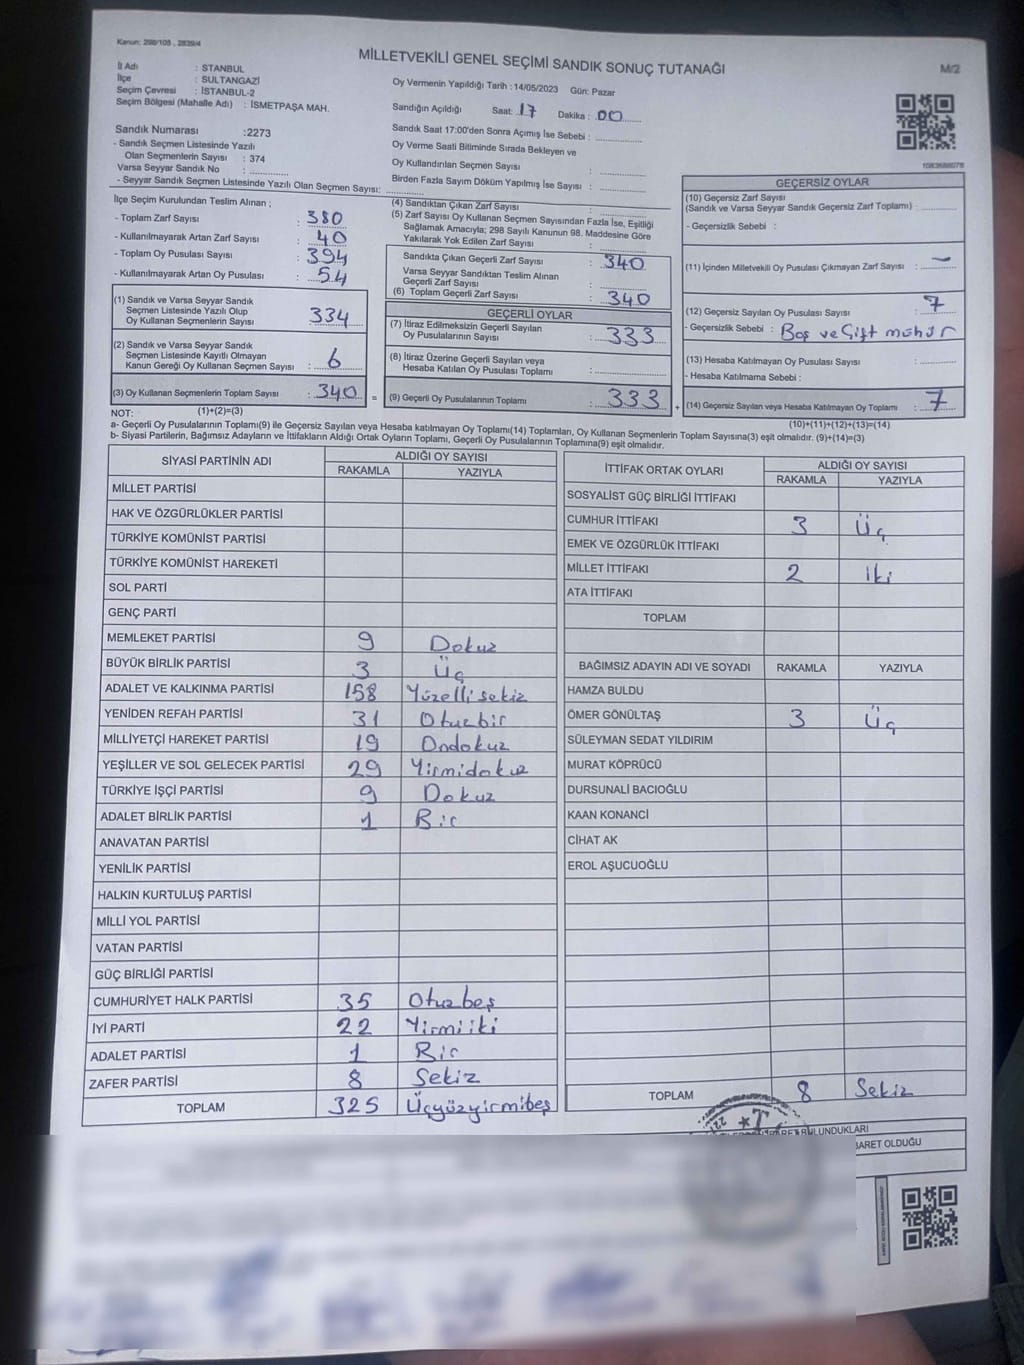 Kanun: 298/105 , 2839/4
MİLLETVEKİLİ GENEL SEÇİMİ SANDIK SONUÇ TUTANAĞI
M/2
İl Adı : STANBUL
İlçe : SULTANGAZİ
Seçim Çevresi : İSTANBUL-2
Seçim Bölgesi (Mahalle Adı) : İSMETPAŞA MAH.
Sandık Numarası :2273
- Sandık Seçmen Listesinde Yazılı
Olan Seçmenlerin Sayısı : 374
Varsa Seyyar Sandık No :
- Seyyar Sandık Seçmen Listesinde Yazılı Olan Seçmen Sayısı:
Oy Vermenin Yapıldığı Tarih : 14/05/2023 Gün: Pazar
Sandığın Açıldığı Saat: 17 Dakika : 00
Sandık Saat 17:00'den Sonra Açımış İse Sebebi :
Oy Verme Saati Bitiminde Sırada Bekleyen ve
Oy Kullandırılan Seçmen Sayısı :
Birden Fazla Sayım Döküm Yapılmış İse Sayısı :
İlçe Seçim Kurulundan Teslim Alınan ;
- Toplam Zarf Sayısı : 380
- Kullanılmayarak Artan Zarf Sayısı : 40
- Toplam Oy Pusulası Sayısı : 394
- Kullanılmayarak Artan Oy Pusulası : 54
(1) Sandık ve Varsa Seyyar Sandık
Seçmen Listesinde Yazılı Olup
Oy Kullanan Seçmenlerin Sayısı : 334
(2) Sandık ve Varsa Seyyar Sandık
Seçmen Listesinde Kayıtlı Olmayan
Kanun Gereği Oy Kullanan Seçmen Sayısı : 6
(3) Oy Kullanan Seçmenlerin Toplam Sayısı : 340 =
(1)+(2)=(3)
(4) Sandıktan Çıkan Zarf Sayısı :
(5) Zarf Sayısı Oy Kullanan Seçmen Sayısından Fazla İse, Eşitliği
Sağlamak Amacıyla; 298 Sayılı Kanunun 98. Maddesine Göre
Yakılarak Yok Edilen Zarf Sayısı :
Sandıkta Çıkan Geçerli Zarf Sayısı : 340
Varsa Seyyar Sandıktan Teslim Alınan
Geçerli Zarf Sayısı :
(6) Toplam Geçerli Zarf Sayısı : 340
GEÇERLİ OYLAR
(7) İtiraz Edilmeksizin Geçerli Sayılan
Oy Pusulalarının Sayısı : 333
(8) İtiraz Üzerine Geçerli Sayılan veya
Hesaba Katılan Oy Pusulası Toplamı :
(9) Geçerli Oy Pusulalarının Toplamı : 333 +
GEÇERSİZ OYLAR
(10) Geçersiz Zarf Sayısı
(Sandık ve Varsa Seyyar Sandık Geçersiz Zarf Toplamı) :
- Geçersizlik Sebebi :
(11) İçinden Milletvekili Oy Pusulası Çıkmayan Zarf Sayısı : –
(12) Geçersiz Sayılan Oy Pusulası Sayısı : 7
- Geçersizlik Sebebi : Boş ve Çift mühür
(13) Hesaba Katılmayan Oy Pusulası Sayısı :
- Hesaba Katılmama Sebebi :
(14) Geçersiz Sayılan veya Hesaba Katılmayan Oy Toplamı : 7
(10)+(11)+(12)+(13)=(14)
NOT:
a- Geçerli Oy Pusulalarının Toplamı(9) ile Geçersiz Sayılan veya Hesaba katılmayan Oy Toplamı(14) Toplamları, Oy Kullanan Seçmenlerin Toplam Sayısına(3) eşit olmalıdır. (9)+(14)=(3)
b- Siyasi Partilerin, Bağımsız Adayların ve İttifakların Aldığı Ortak Oyların Toplamı, Geçerli Oy Pusulalarının Toplamına(9) eşit olmalıdır.
SİYASİ PARTİNİN ADI ALDIĞI OY SAYISI
RAKAMLA YAZIYLA
MİLLET PARTİSİ
HAK VE ÖZGÜRLÜKLER PARTİSİ
TÜRKİYE KOMÜNİST PARTİSİ
TÜRKİYE KOMÜNİST HAREKETİ
SOL PARTİ
GENÇ PARTİ
MEMLEKET PARTİSİ 9 Dokuz
BÜYÜK BİRLİK PARTİSİ 3 Üç
ADALET VE KALKINMA PARTİSİ 158 Yüzellisekiz
YENİDEN REFAH PARTİSİ 31 Otuzbir
MİLLİYETÇİ HAREKET PARTİSİ 19 Ondokuz
YEŞİLLER VE SOL GELECEK PARTİSİ 29 Yirmidokuz
TÜRKİYE İŞÇİ PARTİSİ 9 Dokuz
ADALET BİRLİK PARTİSİ 1 Bir
ANAVATAN PARTİSİ
YENİLİK PARTİSİ
HALKIN KURTULUŞ PARTİSİ
MİLLİ YOL PARTİSİ
VATAN PARTİSİ
GÜÇ BİRLİĞİ PARTİSİ
CUMHURİYET HALK PARTİSİ 35 Otuzbeş
İYİ PARTİ 22 Yirmiiki
ADALET PARTİSİ 1 Bir
ZAFER PARTİSİ 8 Sekiz
TOPLAM 325 Üçyüzyirmibeş
İTTİFAK ORTAK OYLARI ALDIĞI OY SAYISI
RAKAMLA YAZIYLA
SOSYALİST GÜÇ BİRLİĞİ İTTİFAKI
CUMHUR İTTİFAKI 3 Üç
EMEK VE ÖZGÜRLÜK İTTİFAKI
MİLLET İTTİFAKI 2 İki
ATA İTTİFAKI
TOPLAM
BAĞIMSIZ ADAYIN ADI VE SOYADI RAKAMLA YAZIYLA
HAMZA BULDU
ÖMER GÖNÜLTAŞ 3 Üç
SÜLEYMAN SEDAT YILDIRIM
MURAT KÖPRÜCÜ
DURSUNALİ BACIOĞLU
KAAN KONANCİ
CİHAT AK
EROL AŞUCUOĞLU
TOPLAM 8 Sekiz
BULUNDUKLARI
BARET OLDUĞU